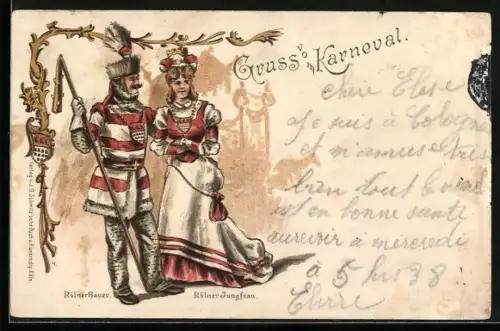 Gruss v/o'm Karneval.
Chère Elise
Je suis à Cologne
et m'amuse très
bien tout le monde
est en bonne santé
au revoir à mercredi
à 5 hrs 38
Kölner Bauer.
Kölner Jungfrau.